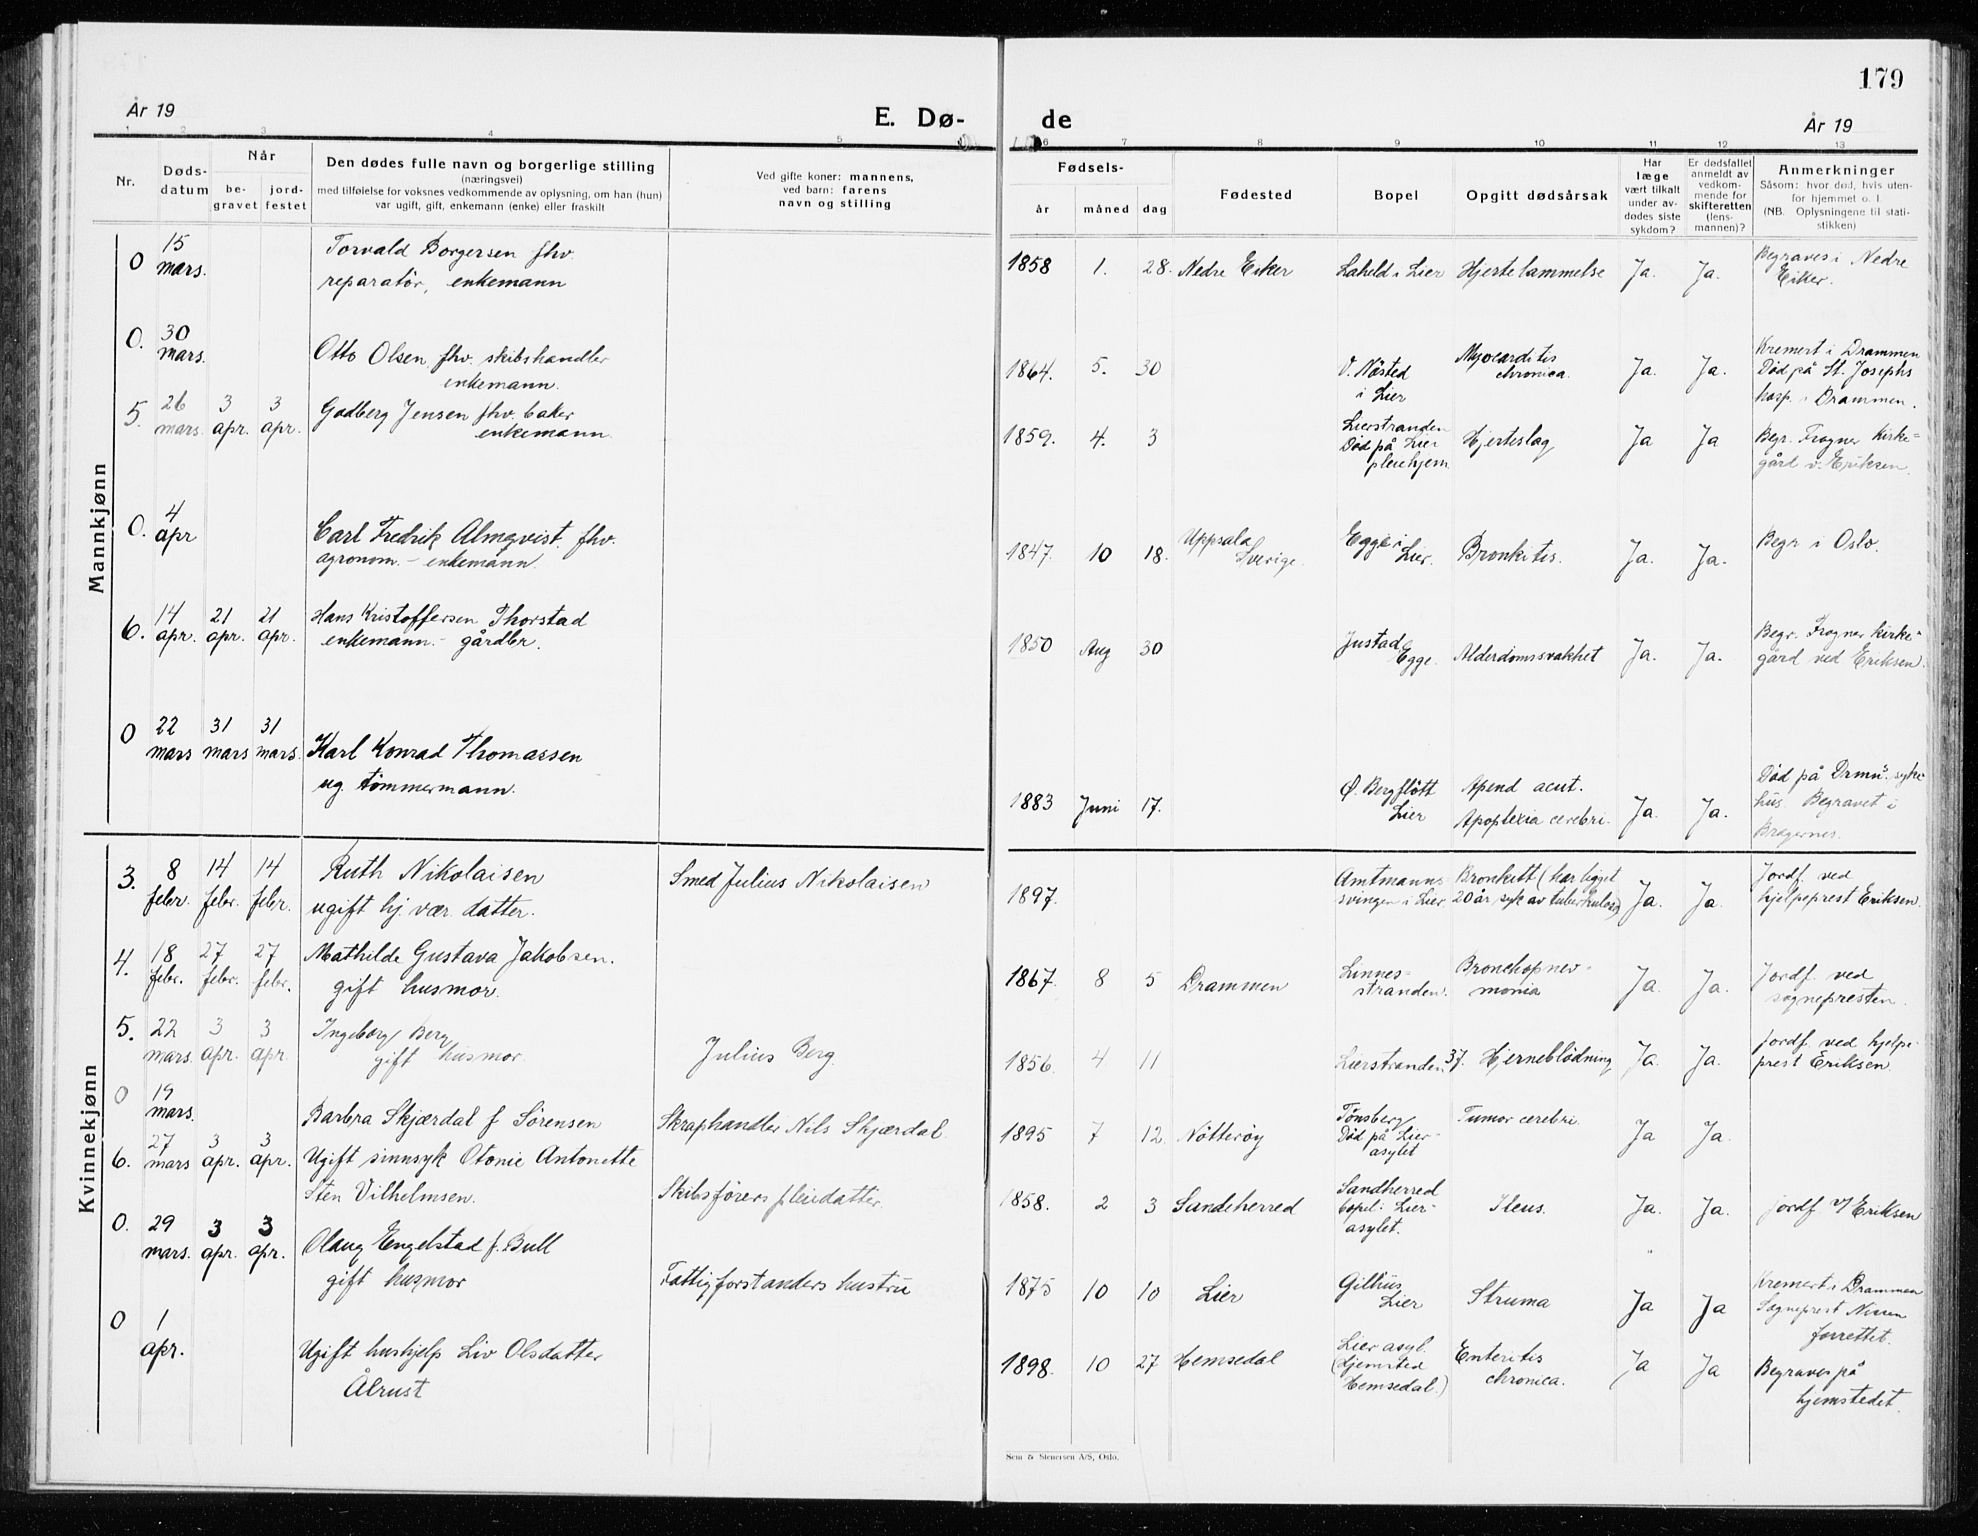 179
År 19
E. Dø-
de
År 19
1 2 3 4 5 6 7 8 9 10 11 12 13
Nr.
Døds-
datum
Når
be-
gravet
jord-
festet
Den dødes fulle navn og borgerlige stilling
(næringsvei)
med tilføielse for voksnes vedkommende av oplysning, om han (hun)
var ugift, gift, enkemann (enke) eller fraskilt
Ved gifte koner: mannens,
ved barn: farens
navn og stilling
Fødsels-
år
måned
dag
Fødested
Bopel
Opgitt dødsårsak
Har
læge
vært tilkalt
under av-
dødes siste
sykdom?
Er dødsfallet
anmeldt av
vedkom-
mende for
skifteretten
(lens-
mannen)?
Anmerkninger
Såsom: hvor død, hvis uten-
for hjemmet o. l.
(NB. Oplysningene til stati-
stikken)
Mannkjønn
0 15 mars. Torvald Borgersen fhv.
reparatør, enkemann
1858 1. 28. Nedre Eiker Laheld i Lier Hjertelammelse Ja. Ja. Begraves i Nedre
Eiker.
0. 30 mars. Otto Olsen fhv. skibshandler
enkemann.
1864. 5. 30 V. Nøsted
i Lier
Myocarditis
chronica.
Ja. Ja. Kremert i Drammen
Død på St. Josephs
hosp. i Drammen.
5. 26 mars. 3 apr. 3 apr. Godberg Jensen fhv. baker
enkemann.
1859. 4. 3 Lierstranden
Død på Lier
pleiehjem
Hjerteslag Ja Ja Begr. Frogner kirke-
gård v. Eriksen.
0. 4 apr Carl Fredrik Almqvist. fhv.
agronom. - enkemann.
1847. 10 18. Uppsala
Sverige.
Egge i
Lier.
Bronkitis. Ja. Ja. Begr i Oslo.
6. 14 apr. 21 apr. 21 apr. Hans Kristoffersen Thorstad
enkemann - gårdbr.
1850 Aug 30 Justad
Egge.
Alderdomssvakhet Ja. Ja. Begr. Frogner kirke-
gård ved Eriksen.
0 22 mars 31 mars 31 mars. Karl Konrad Thomassen
ug. tømmermann.
1883 Juni 17. Ø. Bergfløtt
Lier
Apend acut.
Apoplexia cerebri.
Ja. Ja. Død på Drmns. syke
hus. Begravet i
Bragernes.
Kvinnekjønn
3. 8 febr. 14 febr. 14 febr. Ruth Nikolaisen
ugift hj. vær. datter.
Smed Julius Nikolaisen
1897. Amtmanns-
svingen i Lier.
Bronkitt (har ligget
20 år syk av tuberkulose)
Ja. Ja. Jordf. ved
hjelpeprest Eriksen.
4. 18 febr. 27 febr. 27 febr. Mathilde Gustava Jakobsen.
gift husmor.
1867. 8 5 Drammen Linnes-
stranden.
Bronchopnev-
monia
Ja. Ja. Jordf. ved
sognepresten.
5. 22 mars. 3 apr. 3 apr. Ingeborg Berg
gift husmor.
Julius Berg.
1856. 4 11 Lierstranden 37. Hjerneblødning Ja. Ja. Jordf. ved hjelpe-
prest Eriksen.
0 19 mars. Barbra Skjærdal f Sørensen
Skraphandler Nils Skjærdal.
1895 7 12. Nøtterøy Tønsberg
Død på Lier-
asylet
Tumor cerebri. Ja Ja.
6. 27 mars 3 apr. 3 apr. Ugift sinnsyk Otonie Antonette
Sten Vilhelmsen.
Skibsførers pleiedatter.
1858. 2 3 Sandeherred Sandherred
bopel: Lier-
asylet.
Ileus. Ja. Ja. Jordf. v/ Eriksen
0. 29 mars. 3 apr. 3 apr. Olaug Engelstad f. Bull
gift husmor
Fattigforstanders hustru
1875 10 10 Lier Gilhus
Lier
Struma Ja Ja Kremert i Drammen
Sogneprest Nissen
forrettet.
0 1 apr. Ugift hushjelp Liv Olsdatter
Ålrust
1898. 10 27 Hemsedal Lier asyl.
(Hjemsted
Hemsedal.)
Enteritis
chronica.
Ja Ja Begraves på
hjemstedet.
Sem & Stenersen A/S, Oslo.